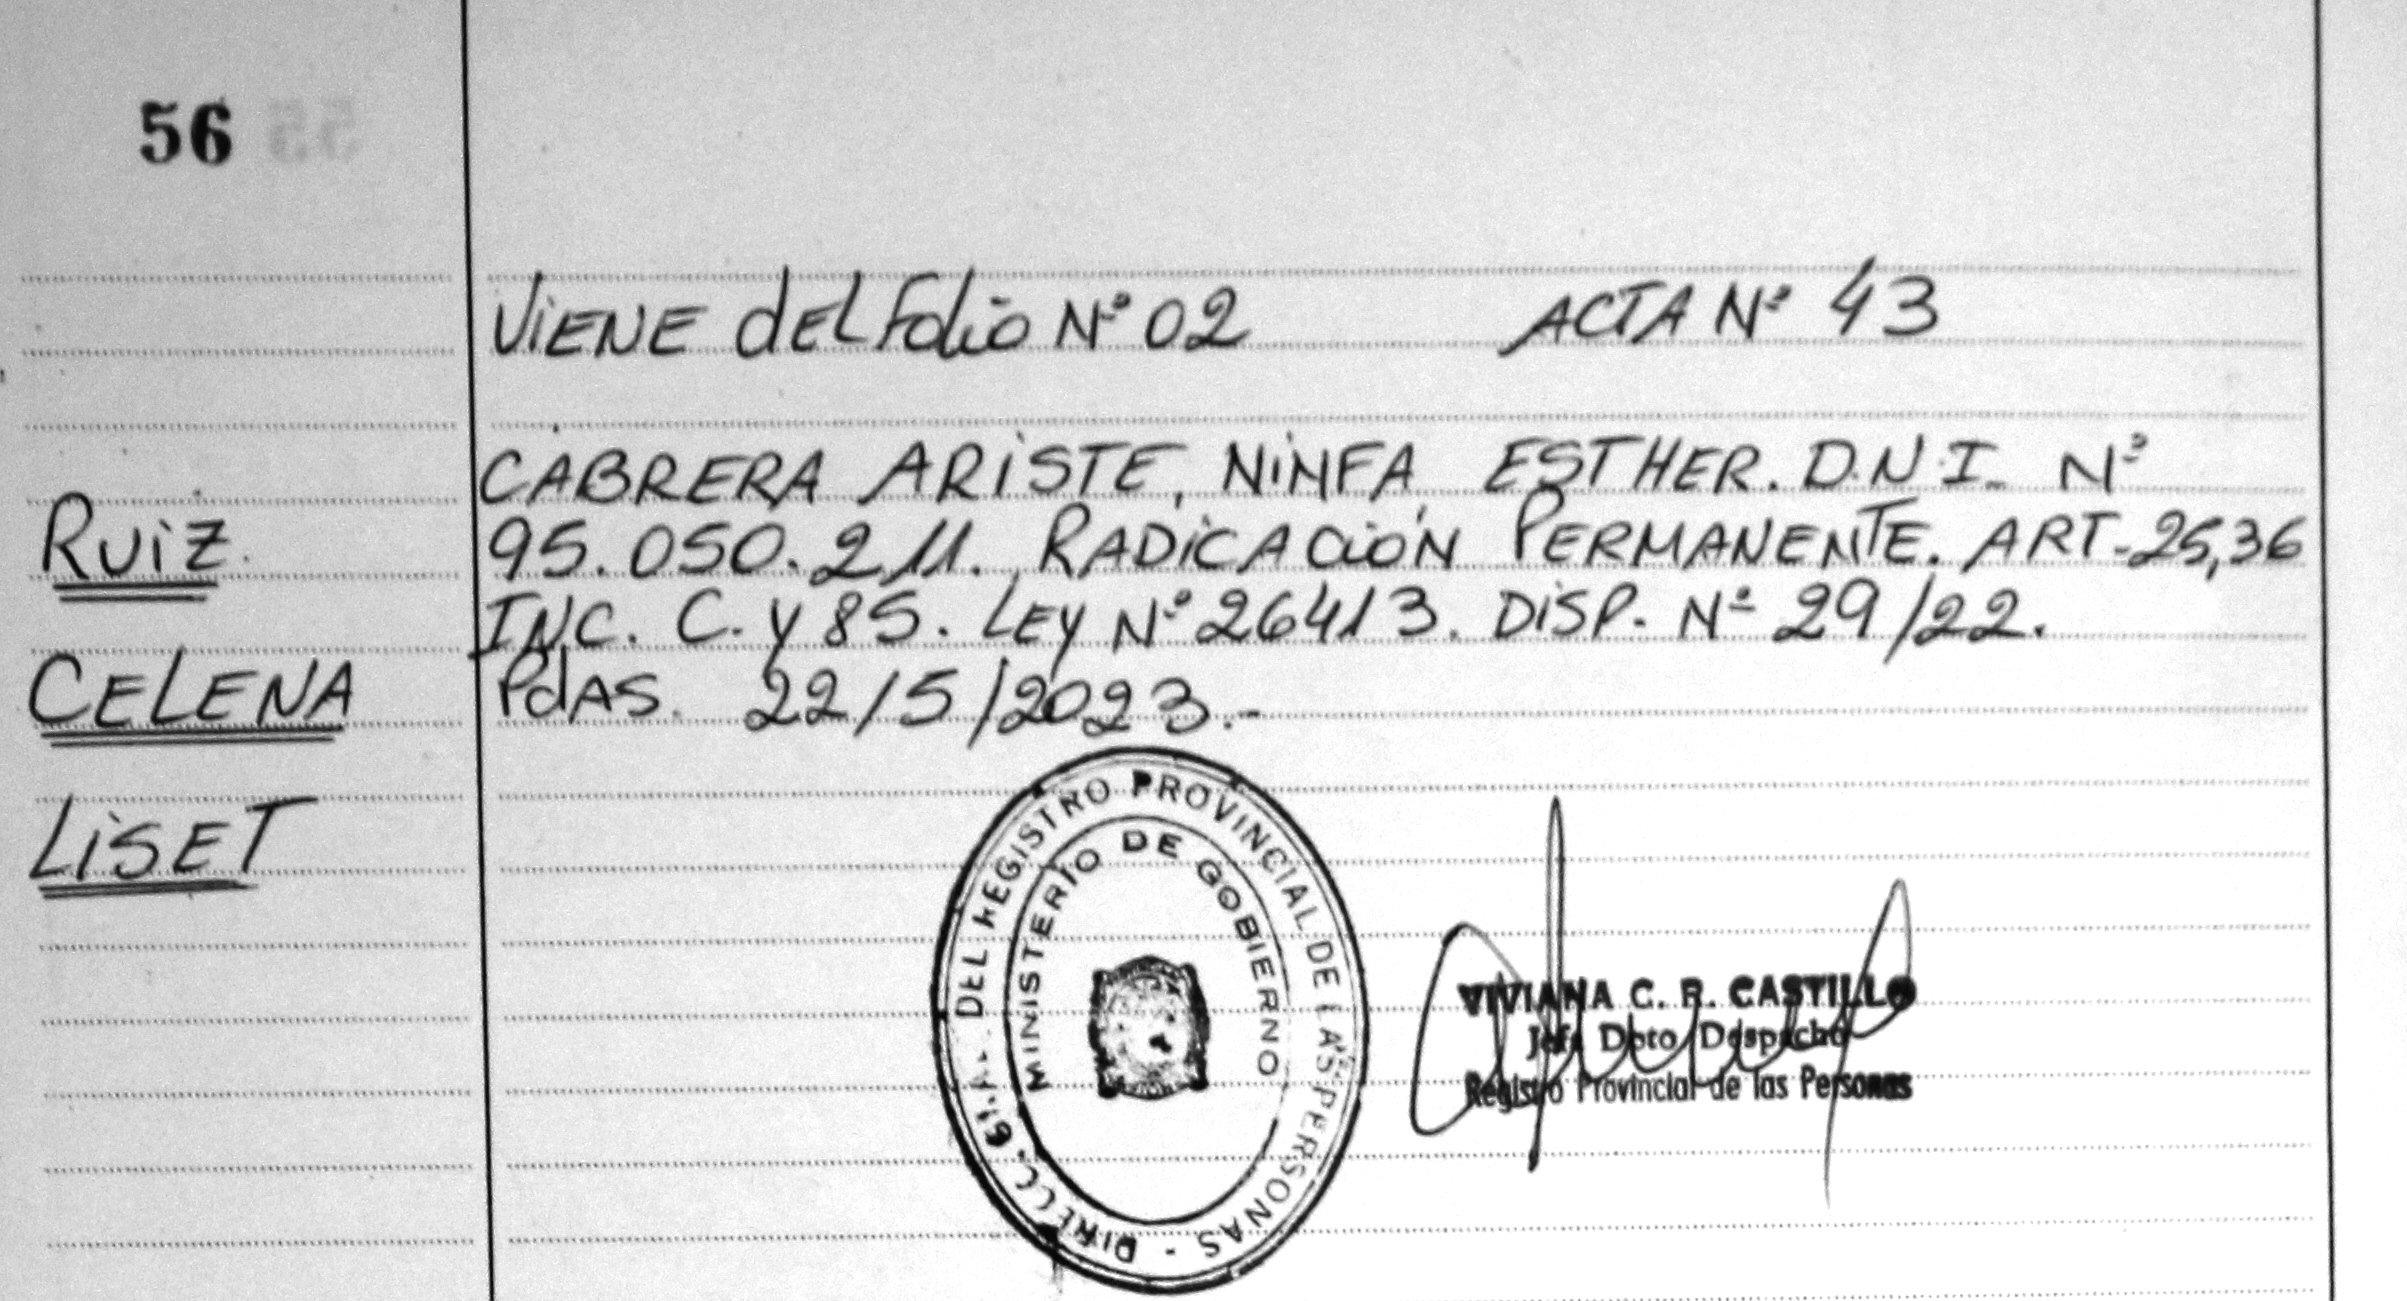 56
VIENE dEL Folio Nº 02 ACTA Nº 43
CABRERA ARISTE, NINFA ESTHER. D.N.I. Nº
95.050.211. RADICACIÓN PERMANENTE. ART-25,36
INC. C. y 85. LEY Nº 26413. DISP. Nº 29/22.
PdAS. 22/5/2023.-
RUIZ
CELENA
LISET
DEL REGISTRO PROVINCIAL DE LAS PERSONAS -
MINISTERIO DE GOBIERNO
VIVIANA C. R. CASTILLO
Jefe Dpto Despacho
Registro Provincial de las Personas